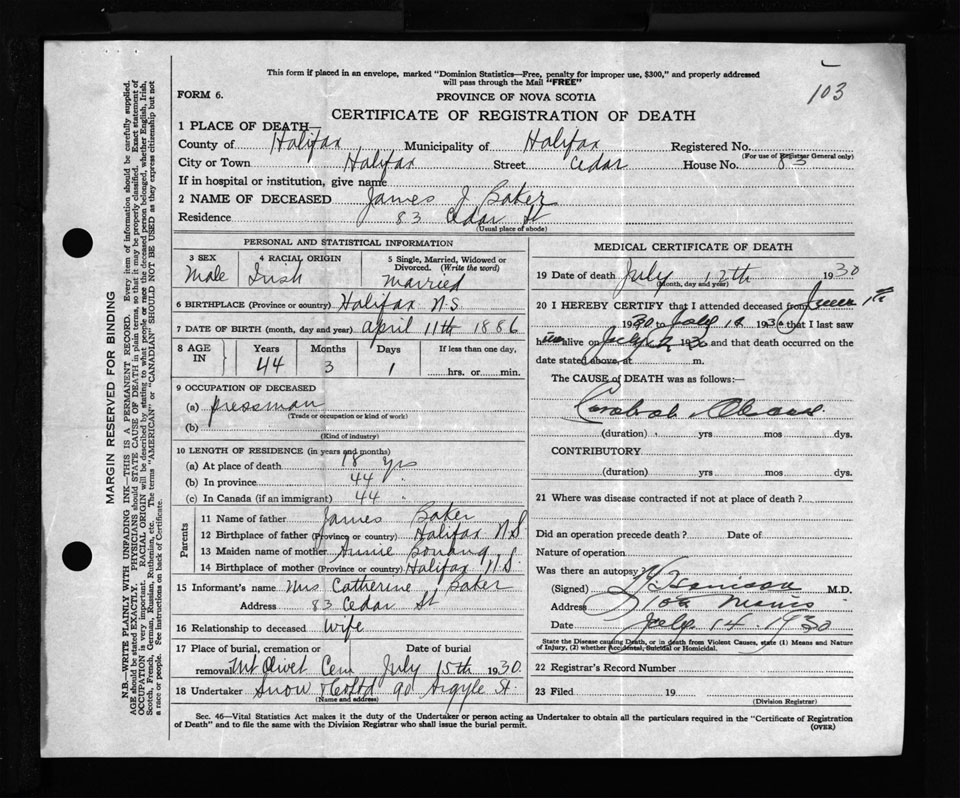 This form if placed in an envelope, marked "Dominion Statistics—Free, penalty for improper use, $300," and properly addressed
will pass through the Mail "FREE"
103
FORM 6.
PROVINCE OF NOVA SCOTIA
CERTIFICATE OF REGISTRATION OF DEATH
1 PLACE OF DEATH—
County of Halifax Municipality of Halifax Registered No.
(For use of Registrar General only)
City or Town Halifax Street Cedar House No. 83
If in hospital or institution, give name
2 NAME OF DECEASED James J Baker
Residence 83 Cedar St
(Usual place of abode)
PERSONAL AND STATISTICAL INFORMATION
3 SEX 4 RACIAL ORIGIN 5 Single, Married, Widowed or Divorced. (Write the word)
Male Irish Married
6 BIRTHPLACE (Province or country) Halifax N.S
7 DATE OF BIRTH (month, day and year) April 11th 1886
8 AGE IN Years Months Days If less than one day,
44 3 1 hrs. or min.
9 OCCUPATION OF DECEASED
(a) Pressman
(Trade or occupation or kind of work)
(b)
(Kind of industry)
10 LENGTH OF RESIDENCE (in years and months)
(a) At place of death 18 yrs
(b) In province 44 "
(c) In Canada (if an immigrant) 44 "
Parents
11 Name of father James Baker
12 Birthplace of father (Province or country) Halifax N.S
13 Maiden name of mother Annie Bonang
14 Birthplace of mother (Province or country) Halifax N.S.
15 Informant's name Mrs Catherine Baker
Address 83 Cedar St
16 Relationship to deceased Wife
17 Place of burial, cremation or Date of burial
removal Mt Olivet Cem July 15th 1930
18 Undertaker Snow & Co Ltd 90 Argyle St.
(Name and address)
MEDICAL CERTIFICATE OF DEATH
19 Date of death July 12th 1930
(Month, day and year)
20 I HEREBY CERTIFY that I attended deceased from June 1st
1930 to July 12 1930 that I last saw
him alive on July 1930 and that death occurred on the
date stated above, at m.
The CAUSE OF DEATH was as follows:—
(duration) yrs mos dys.
CONTRIBUTORY
(duration) yrs mos dys.
21 Where was disease contracted if not at place of death?
Did an operation precede death? Date of
Nature of operation
Was there an autopsy?
(Signed) M.D.
Address
Date July 14 1930
State the Disease causing Death, or in death from Violent Causes, state (1) Means and Nature
of Injury, (2) whether Accidental, Suicidal or Homicidal.
22 Registrar's Record Number
23 Filed 19
(Division Registrar)
Sec. 46—Vital Statistics Act makes it the duty of the Undertaker or person acting as Undertaker to obtain all the particulars required in the "Certificate of Registration
of Death" and to file the same with the Division Registrar who shall issue the burial permit.
(OVER)
MARGIN RESERVED FOR BINDING
N.B.—WRITE PLAINLY WITH UNFADING INK—THIS IS A PERMANENT RECORD. Every item of information should be carefully supplied.
AGE should be stated EXACTLY. PHYSICIANS should STATE CAUSE OF DEATH in plain terms, so that it may be properly classified. Exact statement of
OCCUPATION is very important. RACIAL ORIGIN will be described by stating to what people or race the deceased person belonged, whether English, Irish,
Scotch, French, German, Russian, Ruthenian, etc. The terms "AMERICAN" or "CANADIAN" SHOULD NOT BE USED as they express citizenship but not
a race or people. See instructions on back of Certificate.